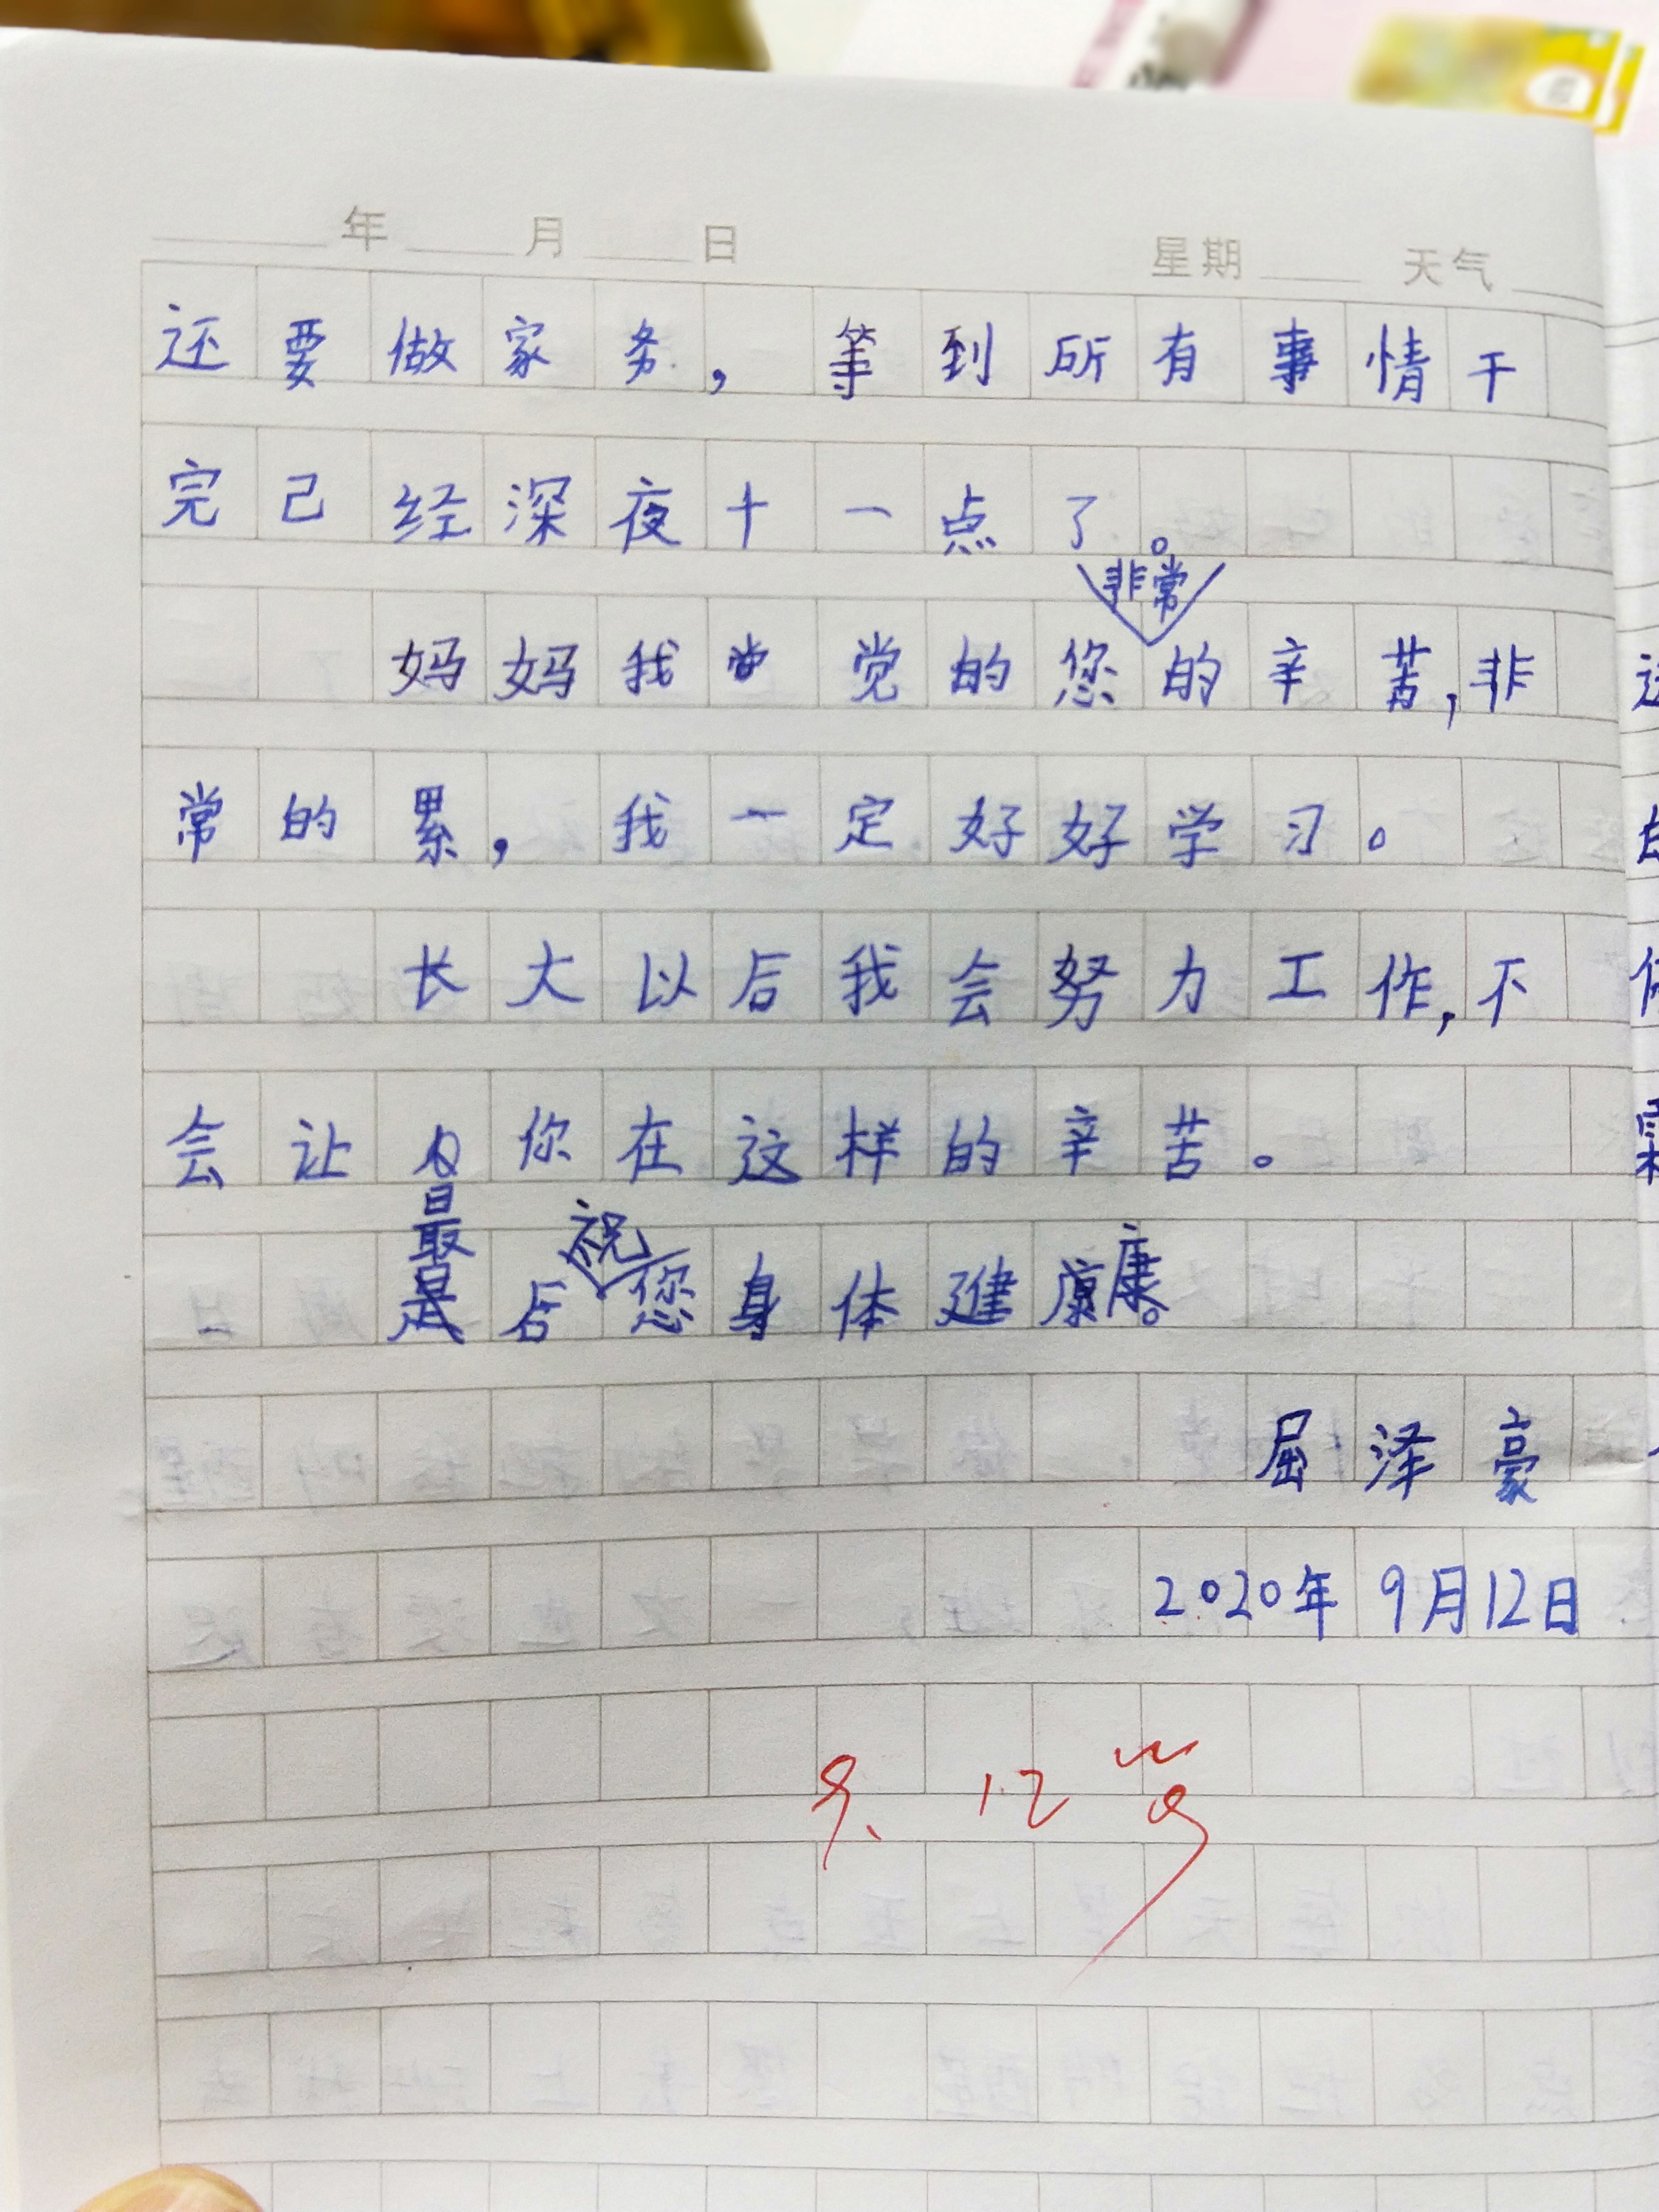 年 月 日 星期 天气
还要做家务，等到所有事情干
完己经深夜十一点了。
非常
妈妈我觉的您的辛苦，非
常的累，我一定好好学习。
长大以后我会努力工作，不
会让你在这样的辛苦。
最后祝您身体建康。
屈泽豪
2020年9月12日
9.12